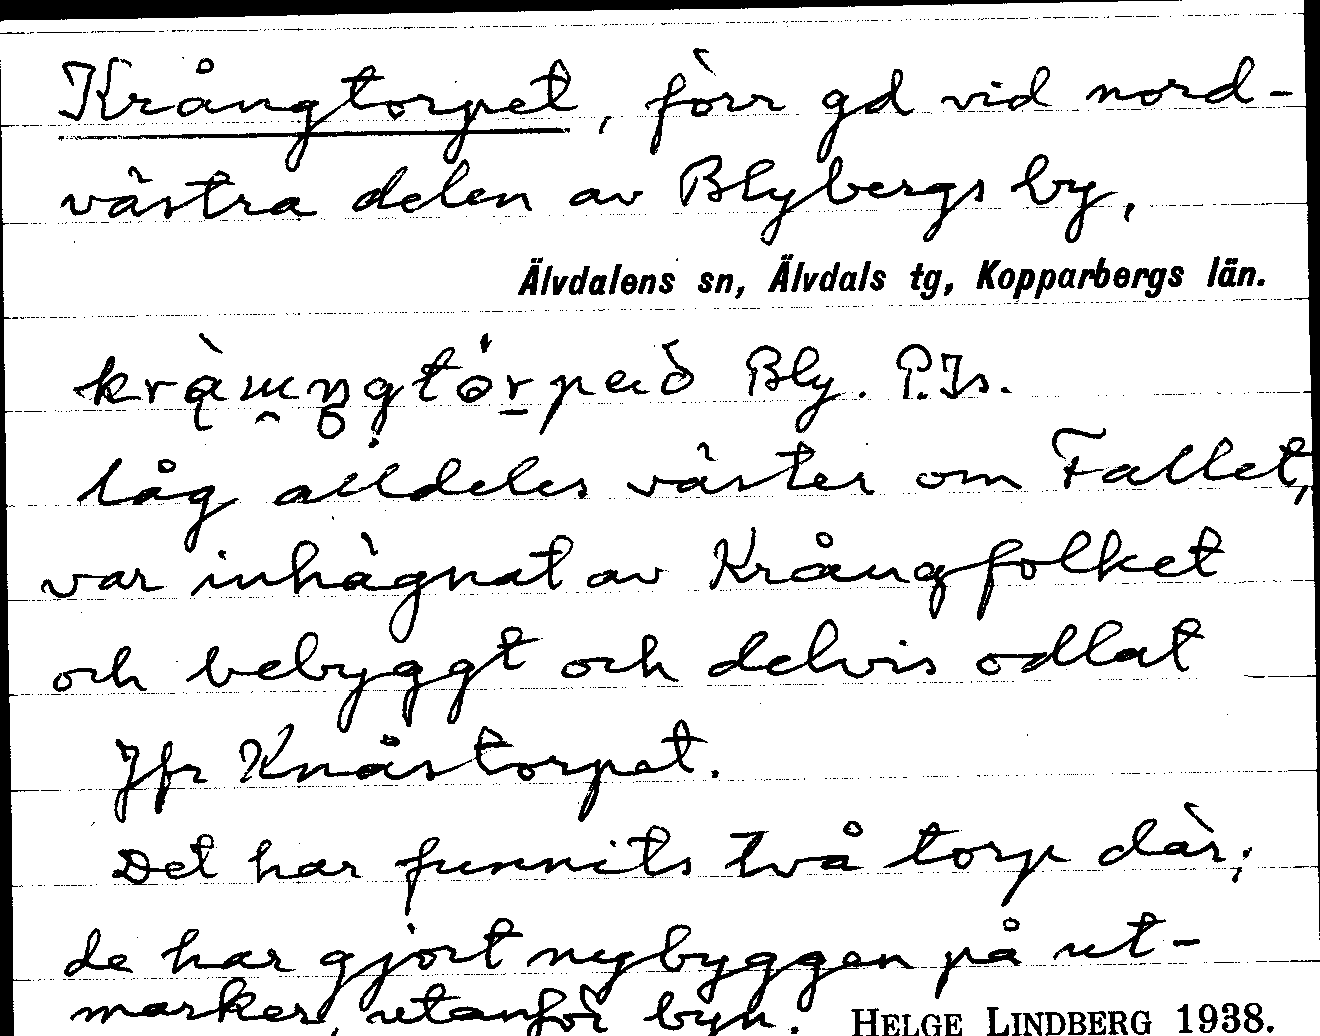 Krångtorpet, förr gd vid nord-
västra delen av Blybergs by,
Älvdalens sn, Älvdals tg, Kopparbergs län.
Bly. P.Is.
låg alldeles väster om Fallet,
var inhägnat av Krångfolket
och bebyggt och delvis odlat
Jfr Knåstorpet.
Det har funnits två torp där;
de har gjort nybyggen på ut-
marker, utanför byn. HELGE LINDBERG 1938.